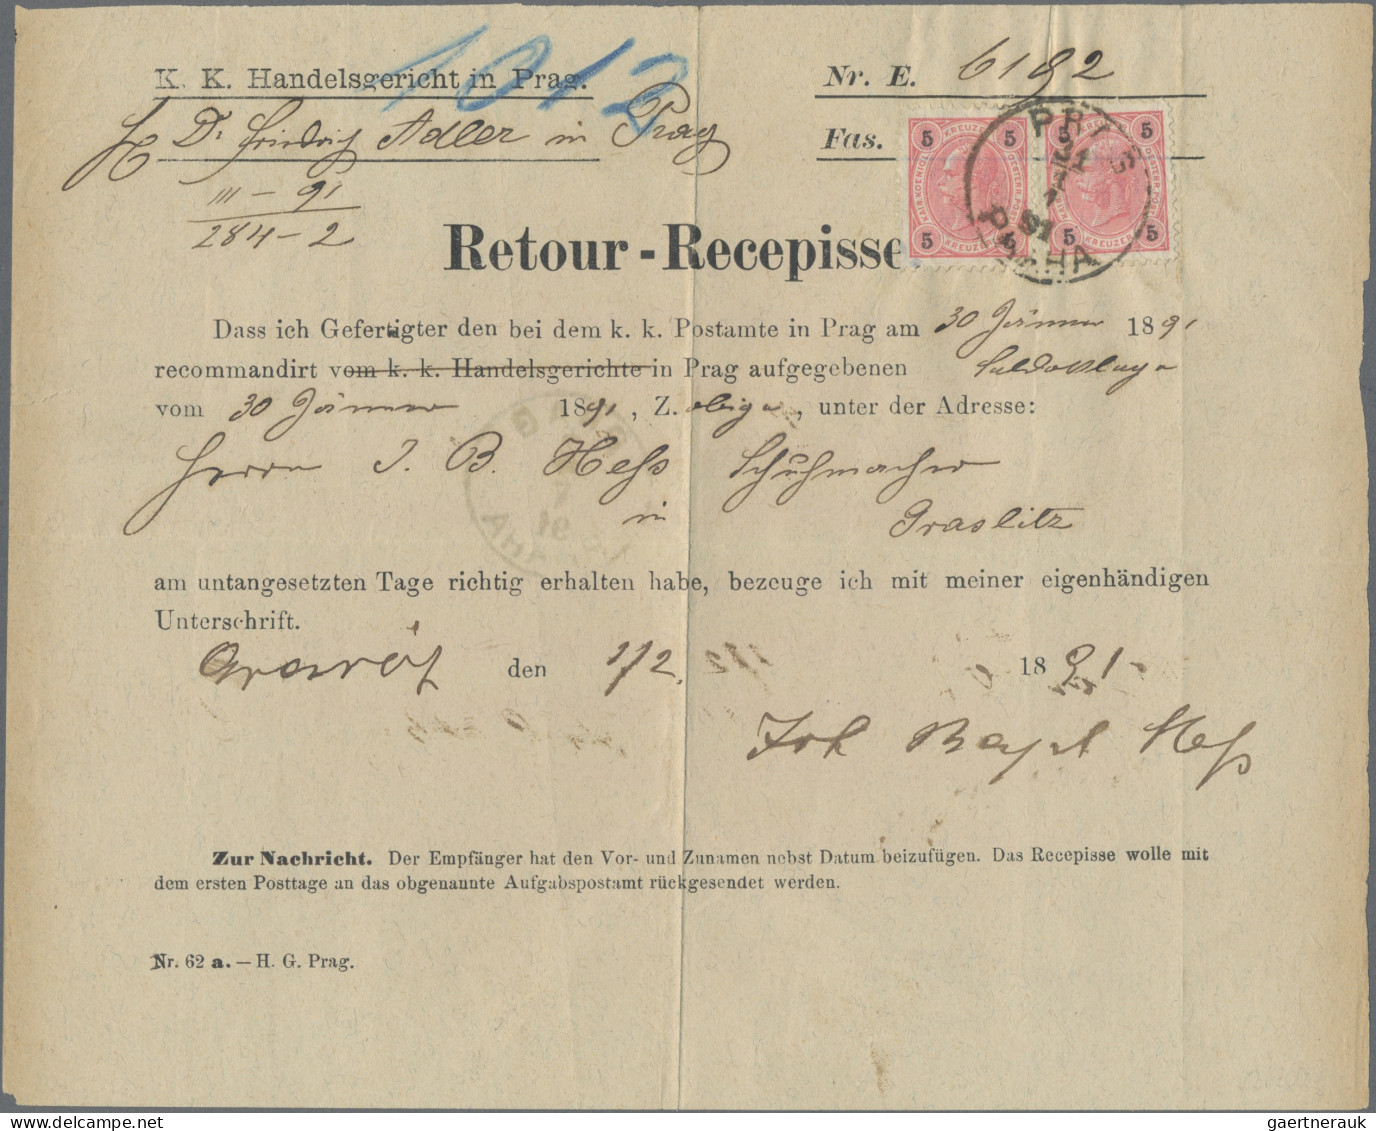 1012
K. K. Handelsgericht in Prag.
Nr. E. 6192
Dr Friedrich Adler in Prag
Fas.
III - 91
284 - 2
5 5 5 5
KAIS. KOENIGL. OESTERR. POST
KREUZER KREUZER
5 5 5 5
PRAG
31
1
91
PRAHA
Retour - Recepisse
Dass ich Gefertigter den bei dem k. k. Postamte in Prag am 30 Jänner 1891
recommandirt vom k. k. Handelsgerichte in Prag aufgegebenen Saldoklage
vom 30 Jänner 1891, Z. obige, unter der Adresse:
Herrn J. B. Heß Schuhmacher
in Graslitz
am untangesetzten Tage richtig erhalten habe, bezeuge ich mit meiner eigenhändigen
Unterschrift.
den 1/2. 1891
Joh Bapt Heß
Zur Nachricht. Der Empfänger hat den Vor- und Zunamen nebst Datum beizufügen. Das Recepisse wolle mit
dem ersten Posttage an das obgenannte Aufgabspostamt rückgesendet werden.
Nr. 62 a. — H. G. Prag.
gaertnerauk